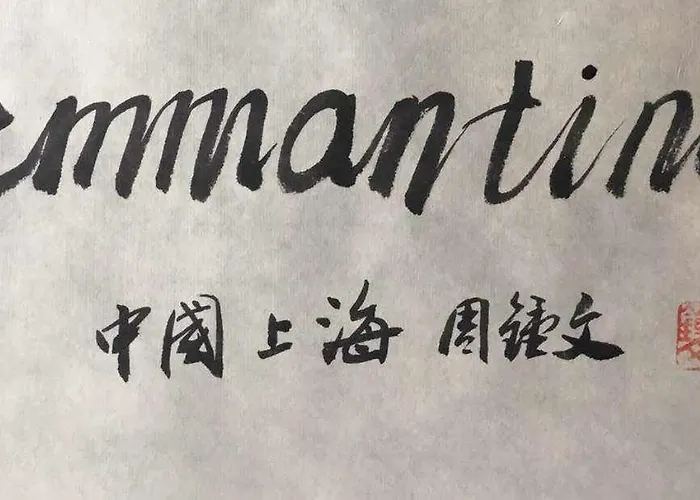 emmantin
中國上海 周鍾文